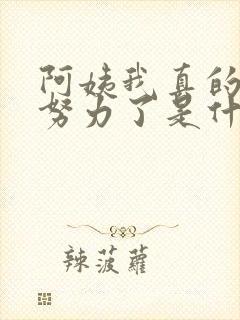 阿姨我真的
努力了是什
辣菠蘿